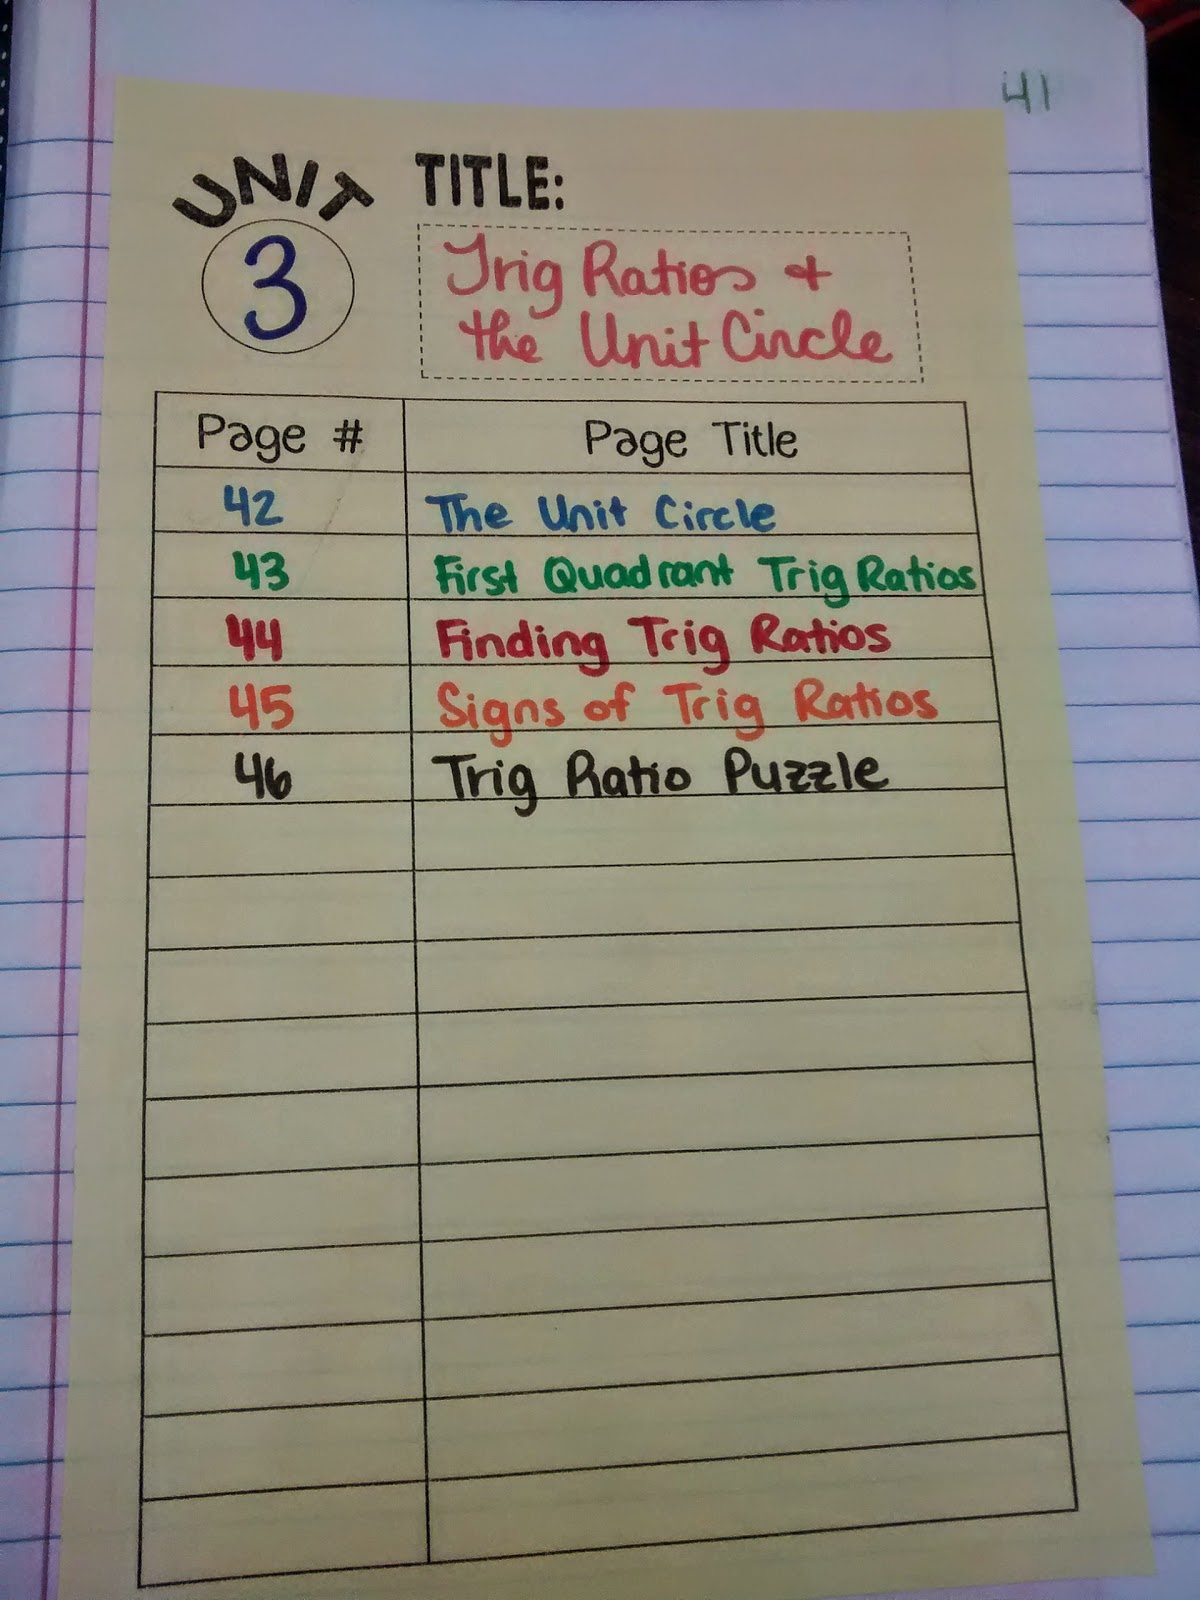 41
UNIT
3
TITLE:
Trig Ratios +
the Unit Circle
Page # Page Title
42 The Unit Circle
43 First Quadrant Trig Ratios
44 Finding Trig Ratios
45 Signs of Trig Ratios
46 Trig Ratio Puzzle